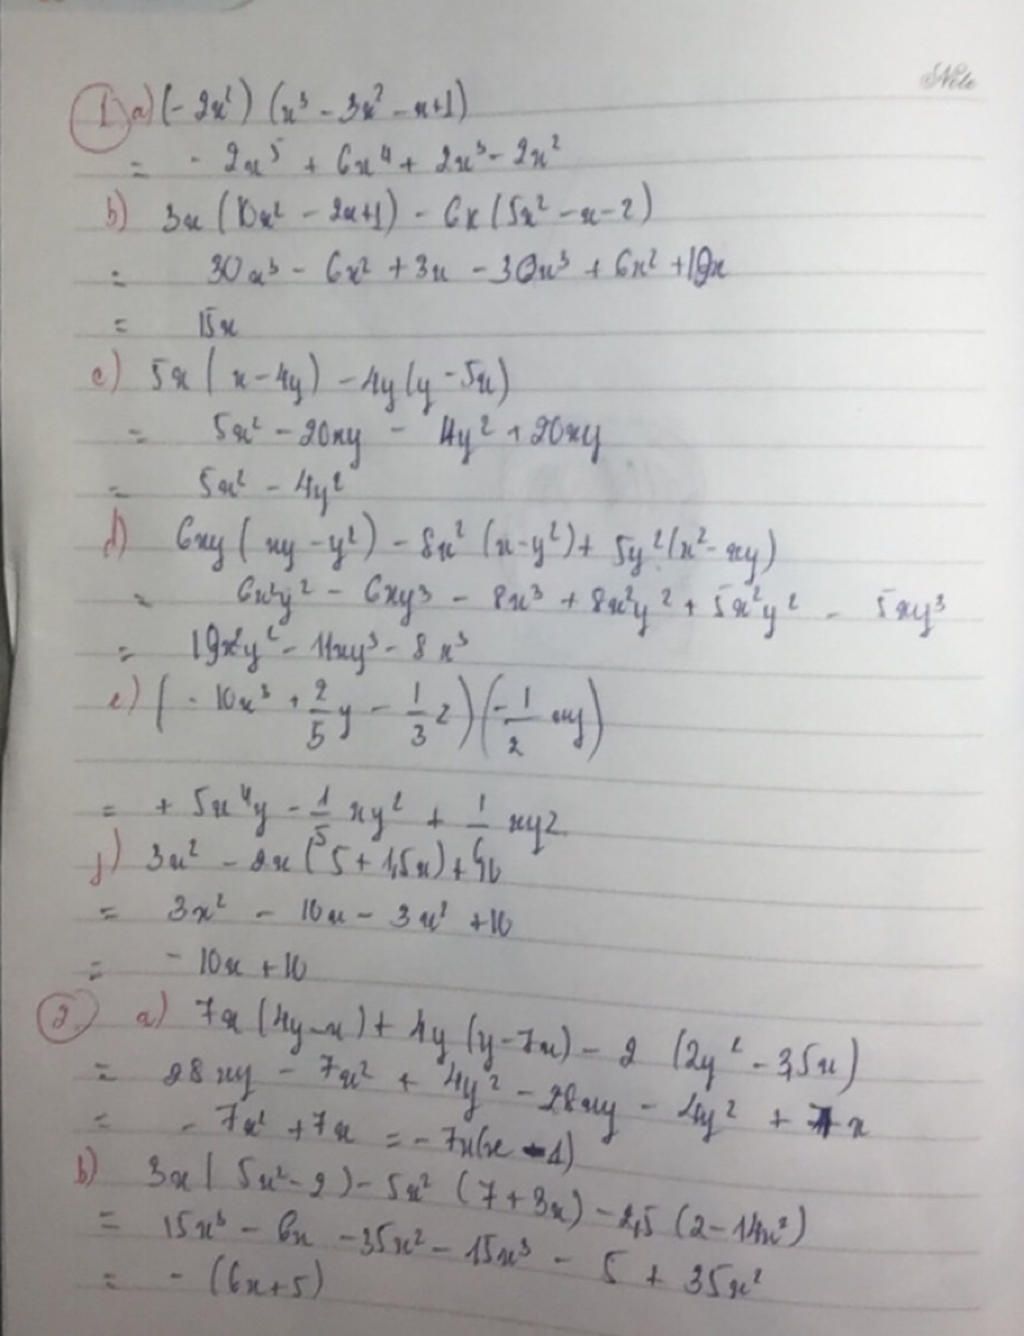 Note
1) a) (-2x²) (x³ - 3x² - x+1)
= - 2x⁵ + 6x⁴ + 2x³ - 2x²
b) 3x (10x² - 2x+1) - 6x (5x² - x - 2)
= 30x³ - 6x² + 3x - 30x³ + 6x² + 12x
= 15x
c) 5x ( x - 4y) - 4y (y - 5x)
= 5x² - 20xy - 4y² + 20xy
= 5x² - 4y²
d) 6xy ( xy - y²) - 8x² (x - y²) + 5y² (x² - xy)
= 6x²y² - 6xy³ - 8x³ + 8x²y² + 5x²y² - 5xy³
= 19x²y² - 11xy³ - 8x³
e) ( - 10x³ + 2/5 y - 1/3 z) (-1/2 xy)
= + 5x⁴y - 1/5 xy² + 1/ xyz
f) 3x² - 2x ( 5 + 1,5x) +
= 3x² - 10x - 3x² + 10
= - 10x + 10
2) a) 7x (4y - x) + 4y (y - 7x) - 2 (2y² - 3,5x)
= 28xy - 7x² + 4y² - 28xy - 4y² + 7x
= - 7x² + 7x = - 7x(x - 1)
b) 3x ( 5x² - 2) - 5x² (7 + 3x) - 2,5 (2 - 14x²)
= 15x³ - 6x - 35x² - 15x³ - 5 + 35x²
= - (6x + 5)